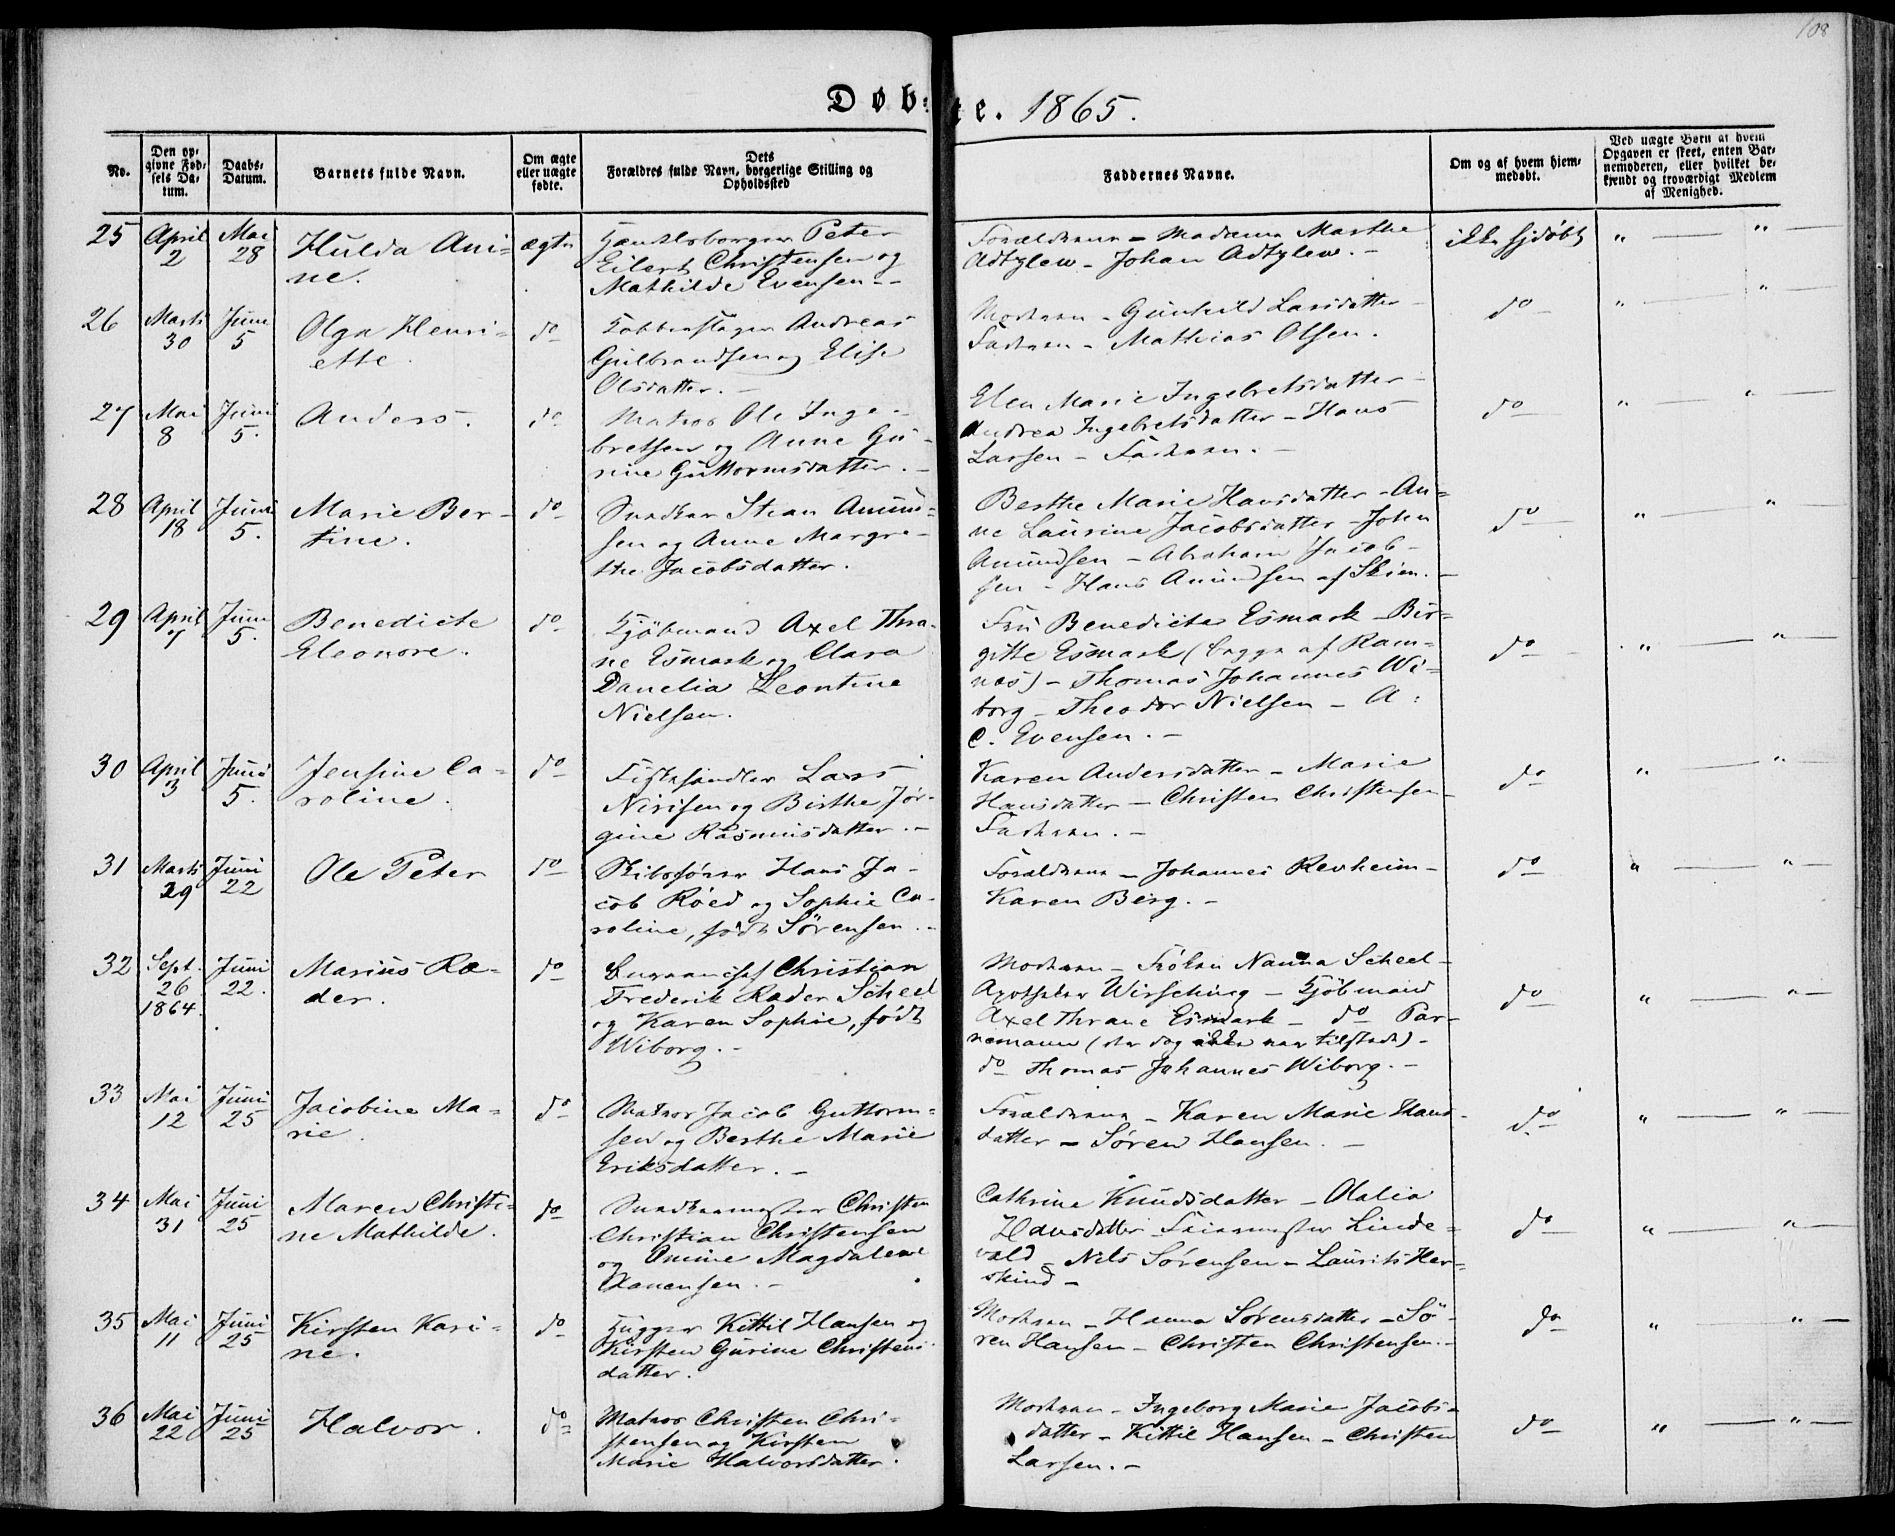 108
Døbte. 1865.
No.
Den opgivne Fødsels Datum.
Daabs-Datum.
Barnets fulde Navn.
Om ægte eller uægte fødte.
Forældres fulde Navn, Dets borgerlige Stilling og Opholdssted
Faddernes Navne.
Om og af hvem hjemmedøbt.
Ved uægte Børn af hvem Opgaven er skeet, enten Barnemoderen, eller hvilket bekjendt og troværdigt Medlem af Menighed.
25 April 2 Mai 28 Hulda Ani-
ne.
ægte
Handelsborger Peter
Eilert Christensen og
Mathilde Evensen -
Forældrene - Madame Marthe
Adtzlew - Johan Adtzlew. -
ikke hjdøbt " — " —
26 Marts 30 Juni 5 Olga Henri-
ette.
do
Kobberslager Andreas
Gulbrandsen og Elise
Olsdatter. -
Moderen - Gunhild Larsdatter -
Faderen - Mathias Olsen.
do " — " —
27 Mai 8 Juni 5. Anders.
do
Matros Ole Inge-
bretsen og Anne Gu-
rine Guttormsdatter. -
Elen Marie Ingebretsdatter -
Andrea Ingebretsdatter - Hans
Larsen - Faderen. -
do " — " —
28 April 18 Juni 5. Marie Ber-
tine.
do
Snedker Stian Amund-
sen og Anne Margre-
the Jacobsdatter.
Berthe Marie Hansdatter - An-
ne Laurine Jacobsdatter - John
Amundsen - Abraham Jacob-
sen - Hans Amundsen af Skien. -
do " — "
29 April 7 Juni 5. Benedicte
Eleonore.
do
Kjöbmand Axel Thra-
ne Esmark og Clara
Danelia Leontine
Nielsen.
Fru Benedicte Esmark - Bir-
gitte Esmark (begge af Ram-
næs) - Thomas Johannes Wi-
borg - Theodor Nielsen - A:
C. Evensen. -
do " — " —
30 April 3 Juni 5. Jensine Ca-
roline.
do
Lars
og Birthe Jör-
gine Rasmusdatter. -
Karen Andersdatter - Marie
Hansdatter - Christen Christensen -
Faderen. -
do " — " —
31 Marts 29 Juni 22 Ole Peter
do
Skibsförer Hans Ja-
cob Röed og Sophie Ca-
roline, födt Sörensen. -
Forældrene - Johannes Revheim -
Karen Berg. -
do " — " —
32 Sept. 26 1864. Juni 22. Marius Ræ-
der.
do
Christian
Frederik Ræder Scheel
og Karen Sophie, födt
Wiborg. -
Moderen - Fröken Nanna Scheel -
Apotheker Wirsching - Kjöbmand
Axel Thrane Esmark - do Par-
nemann (der dog ikke var tilstede) -
do Thomas Johannes Wiborg. -
do " — " —
33 Mai 12 Juni 25 Jacobine Ma-
rie.
do
Matros Jacob Guttorm-
sen og Berthe Marie
Eriksdatter. -
Forældrene - Karen Marie Hans-
datter - Sören Hansen. -
do " — " —
34 Mai 31 Juni 25 Maren Christi-
ne Mathilde.
do
Snedkermester Christen
Christian Christensen
og Amine Magdalene
Hanensen. -
Cathrine Knudsdatter - Olalia
Hansdatter Linde-
vald - Nils Sörensen - Laurits Her-
skind -
do " — " —
35 Mai 11 Juni 25 Kirsten Kari-
ne.
do
Hugger Kittil Hansen og
Kirsten Gurine Christens-
datter.
Moderen - Hanna Sörensdatter - Sö-
ren Hansen - Christen Christensen. -
do " — " —
36 Mai 22 Juni 25 Halvor.
do
Matros Christen Chri-
stensen og Kirsten
Marie Halvorsdatter.
Moderen - Ingeborg Marie Jacobs-
datter - Kittil Hansen - Christen
Larsen. -
do " — " —